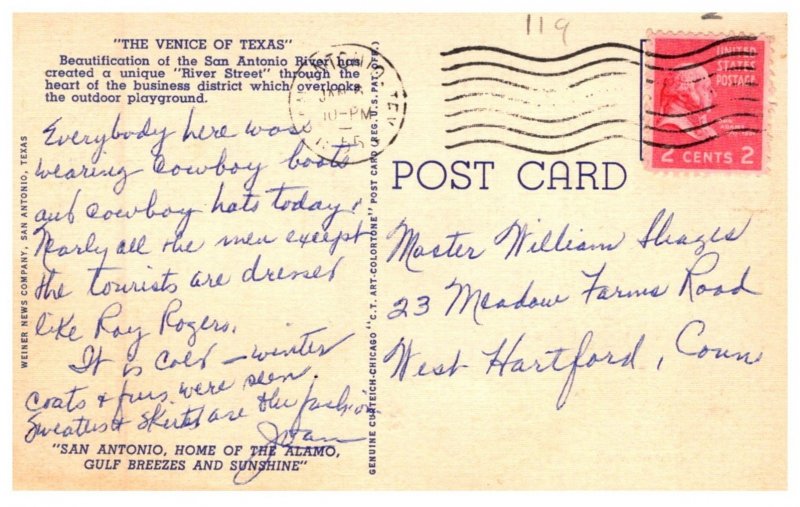 119
"THE VENICE OF TEXAS"
Beautification of the San Antonio River has
created a unique "River Street" through the
heart of the business district which overlooks
the outdoor playground.
Everybody here was
wearing cowboy boots
and cowboy hats today.
Nearly all the men except
the tourists are dressed
like Roy Rogers.
It is cold - winter
coats & furs were seen.
Sweaters & skirts are the fashion
Joan
"SAN ANTONIO, HOME OF THE ALAMO,
GULF BREEZES AND SUNSHINE"
WEINER NEWS COMPANY, SAN ANTONIO, TEXAS
GENUINE CURTEICH-CHICAGO "C.T. ART-COLORTONE" POST CARD (REG. U.S. PAT. OFF.)
10-PM
UNITED
STATES
POSTAGE
2 CENTS 2
POST CARD
Master William
23 Meadow Farms Road
West Hartford, Conn